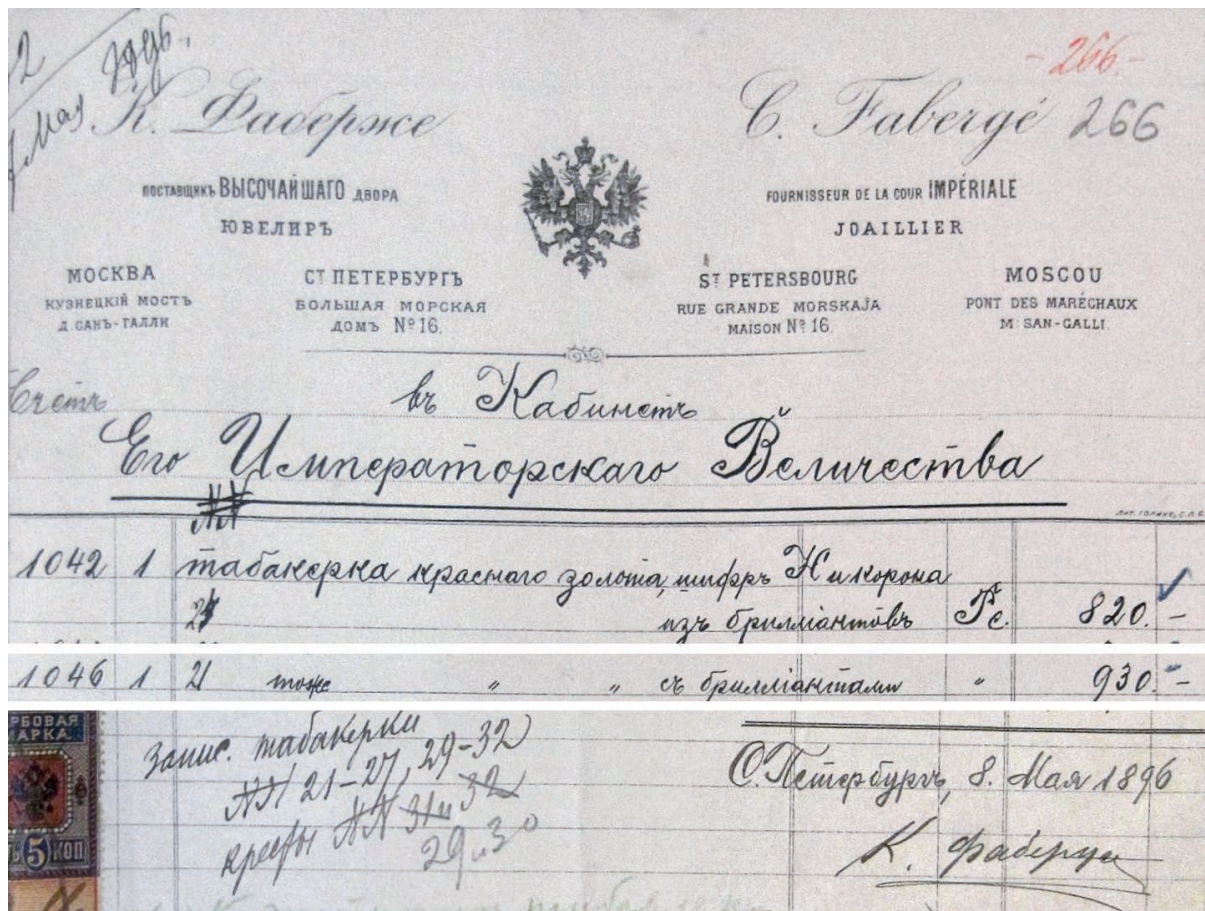 2
Мая 1896.
- 266. -
К. Фаберже
C. Fabergé 266
ПОСТАВЩИКЪ ВЫСОЧАЙШАГО ДВОРА
FOURNISSEUR DE LA COUR IMPÉRIALE
ЮВЕЛИРЪ
JOAILLIER
МОСКВА
КУЗНЕЦКІЙ МОСТЪ
Д. САНЪ-ГАЛЛИ
СТ ПЕТЕРБУРГЪ
БОЛЬШАЯ МОРСКАЯ
ДОМЪ № 16.
ST PETERSBOURG
RUE GRANDE MORSKAJA
MAISON № 16.
MOSCOU
PONT DES MARÉCHAUX
M: SAN-GALLI.
Счетъ
въ Кабинетъ
Его Императорскаго Величества
№№
1042 1 табакерка краснаго золота, шифръ Н и корона
изъ брилліантовъ Рс. 820. -
1046 1 21 тоже " " съ брилліантами " 930. -
РБОВАЯ
АРКА
5 КОП
запис. табакерки
№№ 21-27, 29-32
кресты №№ 31 и 32
29 и 30
С. Петербургъ, 8. Мая 1896
К. Фаберже